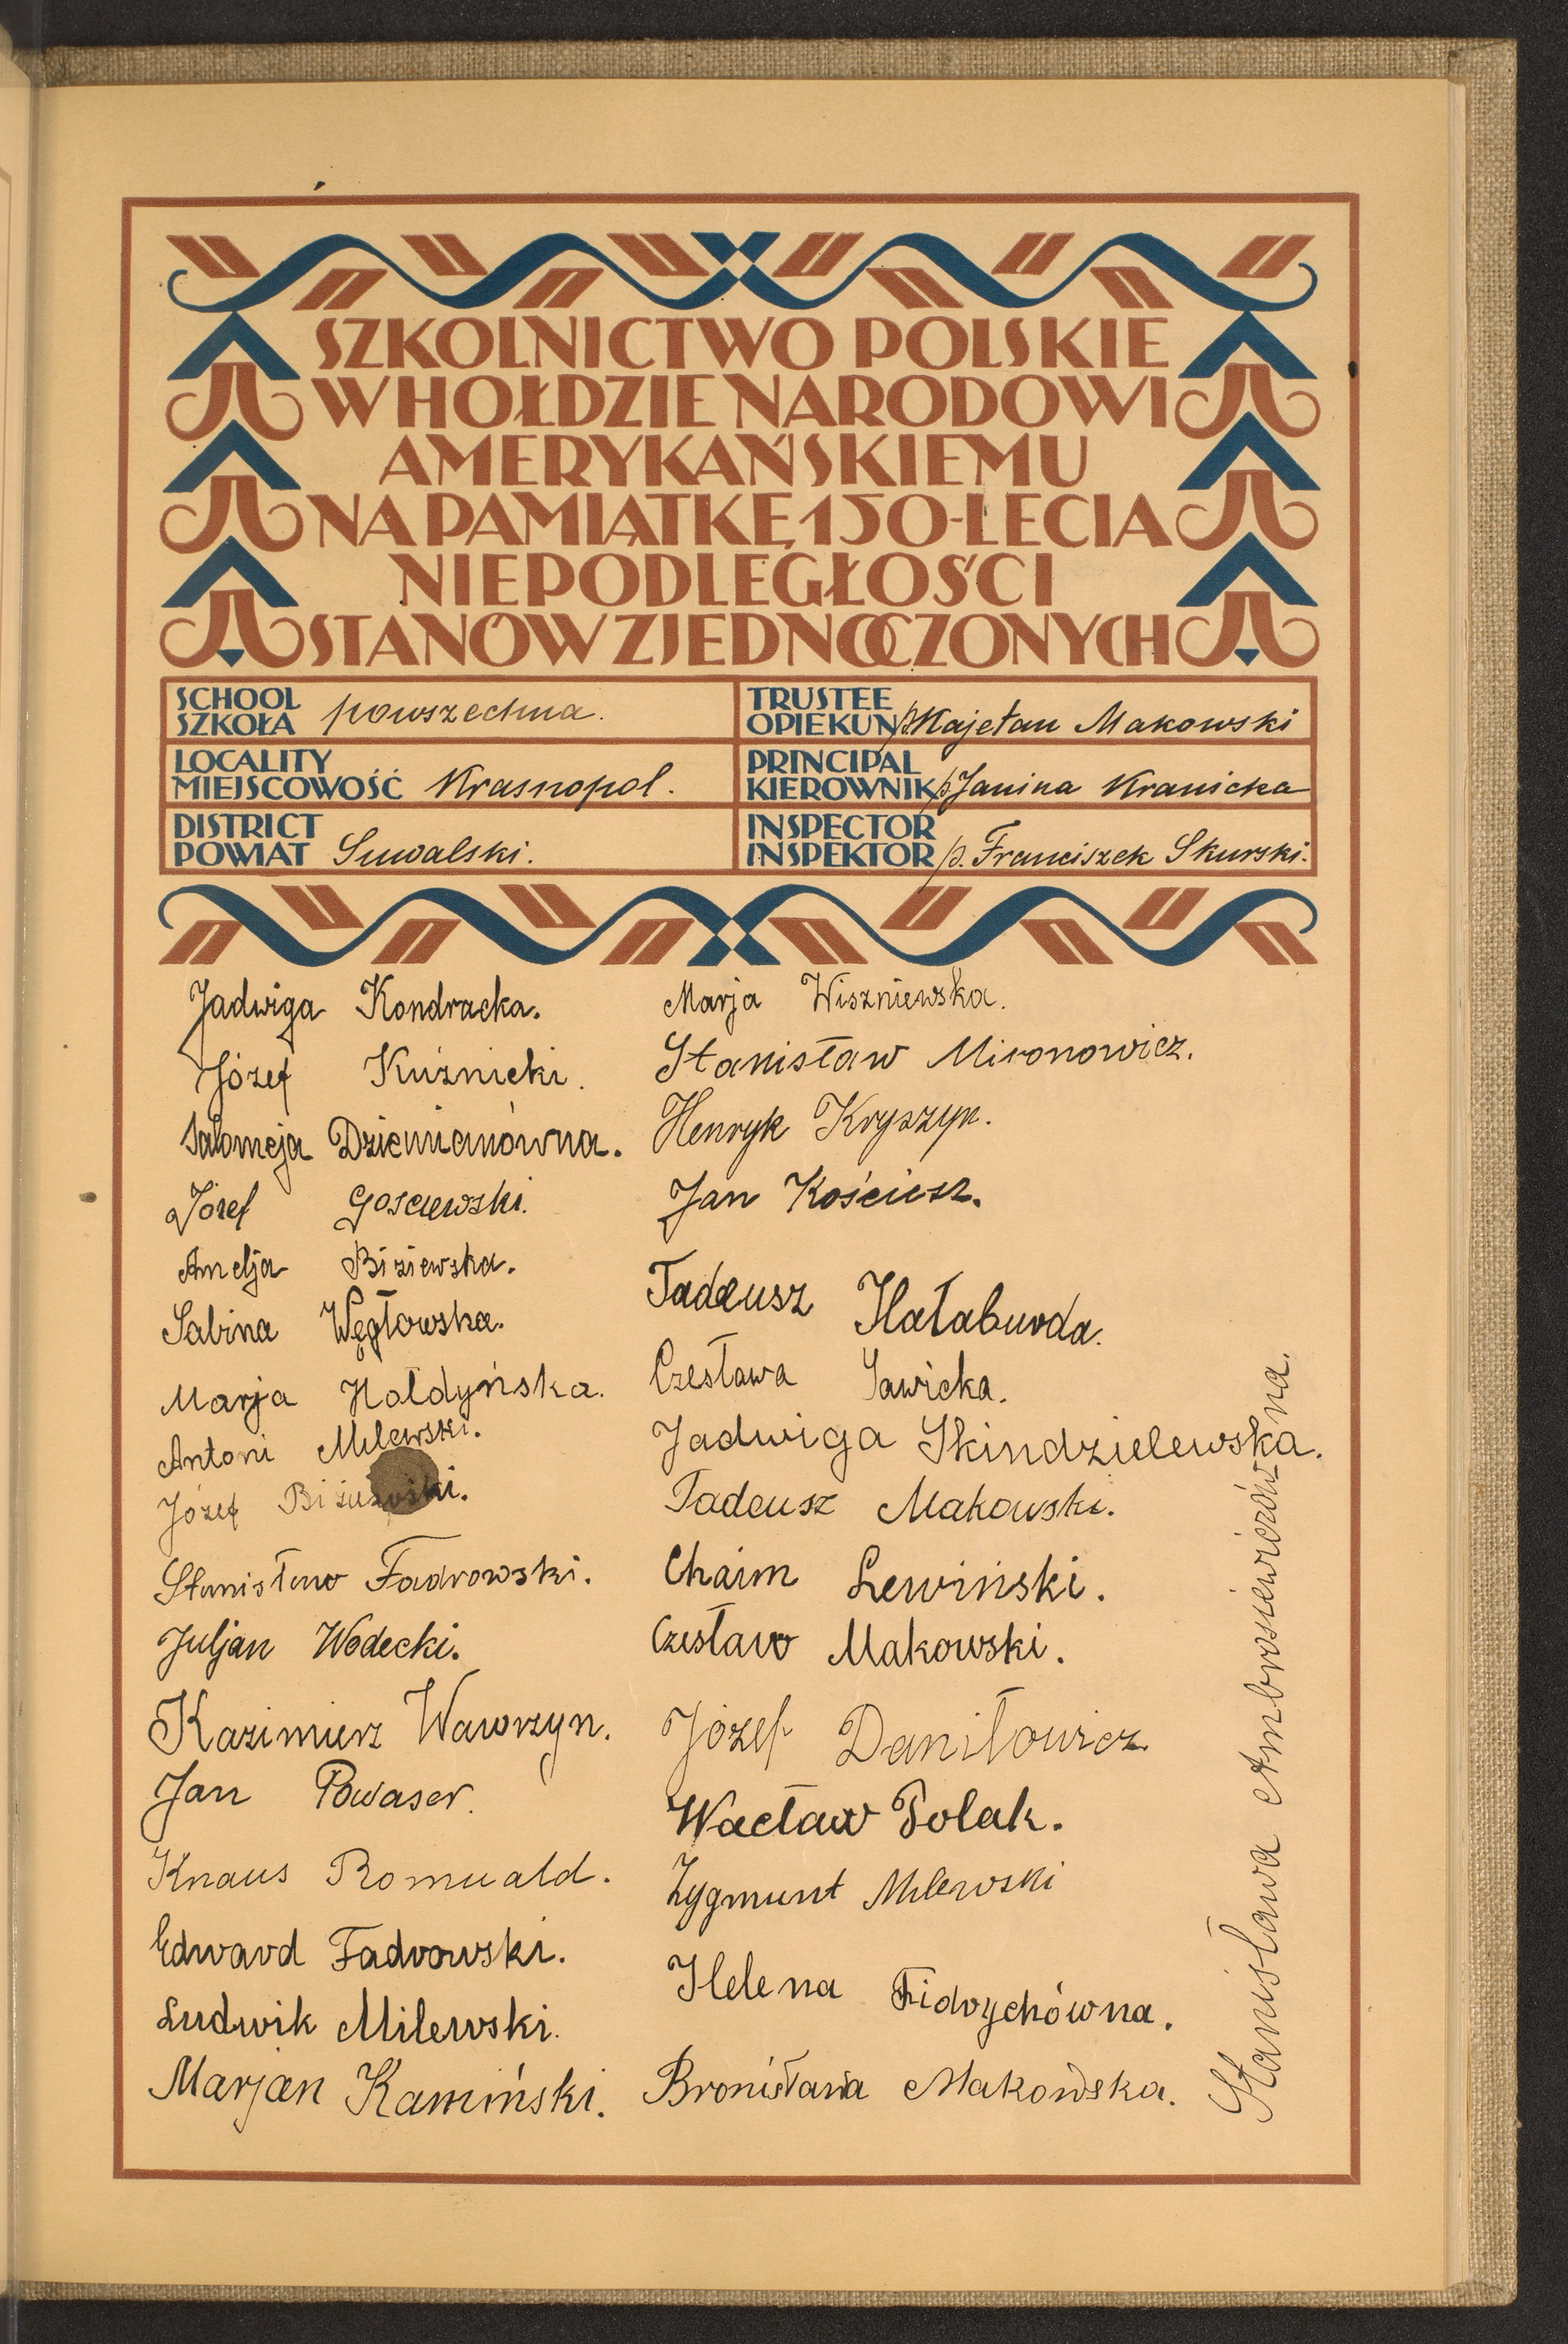 SZKOLNICTWO POLSKIE
W HOŁDZIE NARODOWI
AMERYKAŃSKIEMU
NA PAMIĄTKĘ 150-LECIA
NIEPODLEGŁOŚCI
STANÓW ZJEDNOCZONYCH
SCHOOL
SZKOŁA powszechna.
TRUSTEE
OPIEKUN p. Kajetan Makowski
LOCALITY
MIEJSCOWOŚĆ Krasnopol.
PRINCIPAL
KIEROWNIK p. Janina Kranicka
DISTRICT
POWIAT Suwalski.
INSPECTOR
INSPEKTOR p. Franciszek Skurski.
Jadwiga Kondracka.
Józef Kuźnicki.
Salomeja Dziemianówna.
Józef Gosciewski.
Amelja Biziewska.
Sabina Węgłowska.
Marja Hołdyńska.
Antoni Milewski.
Józef Biziewski.
Stanisław Fadrowski.
Juljan Wodecki.
Kazimierz Wawrzyn.
Jan Powaser.
Knaus Romuald.
Edward Fadrowski.
Ludwik Milewski.
Marjan Kamiński.
Marja Wiszniewska.
Stanisław Mironowicz.
Henryk Kryszyn.
Jan Kościesz.
Tadeusz Hałaburda.
Czesława Sawicka.
Jadwiga Skindzielewska.
Tadeusz Makowski.
Chaim Lewiński.
Czesław Makowski.
Józef Daniłowicz
Wacław Polak.
Zygmunt Milewski
Helena Fidrychówna.
Bronisława Makowska.
Stanisława Ambrosiewiczówna.